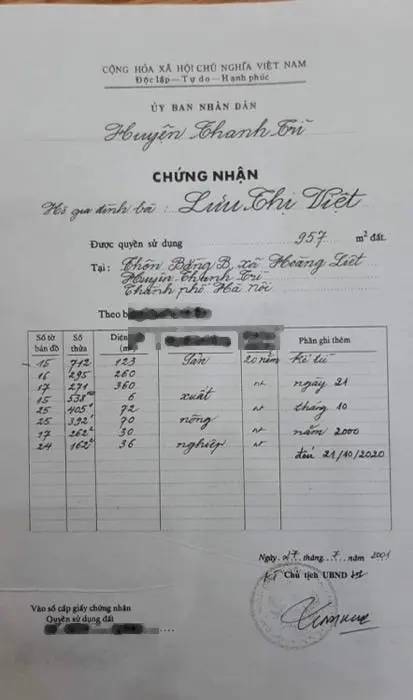 CỘNG HÒA XÃ HỘI CHỦ NGHĨA VIỆT NAM
Độc lập — Tự do — Hạnh phúc
ỦY BAN NHÂN DÂN
Huyện Thanh Trì
CHỨNG NHẬN
Hộ gia đình bà : Lưu Thị Việt
Được quyền sử dụng 957 m2 đất.
Tại : Thôn Bằng B, xã Hoàng Liệt
Huyện Thanh Trì
Thành phố Hà Nội
Theo b
Số tờ bản đồ Số thửa Diện (m Phần ghi thêm
15 712 123 Sản 20 năm kể từ
16 295 260
17 271 360 nt ngày 21
15 538 6 xuất
25 405 72 nt tháng 10
25 392 70 nông
17 262 30 nt năm 2000
24 162 36 nghiệp nt
đến 21/10/2020
Ngày 27 tháng 7 năm 2001
Chủ tịch UBND
Vào sổ cấp giấy chứng nhận
Quyền sử dụng đất